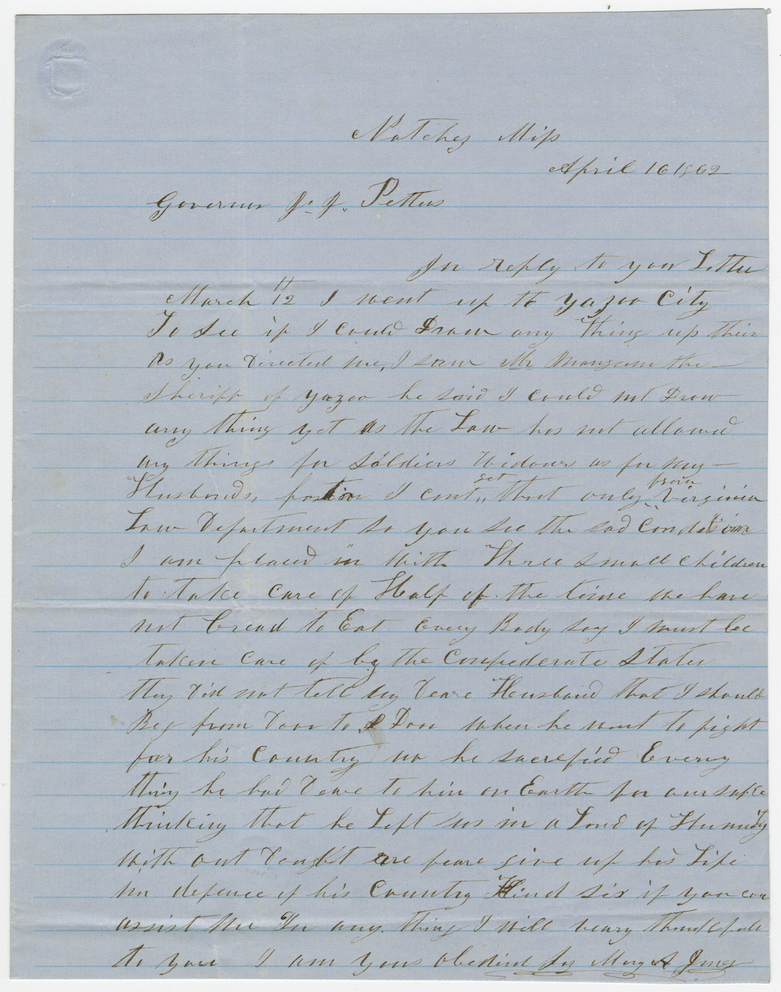 Natchez Miss
April 16 1862
Governor J. J. Pettus
In reply to your Letter
March 12th I went up to yazoo City
To See if I could Draw any thing up their
As you Directed me, I saw Mr Mangum the
Sheriff of yazoo he said I could not Draw
any thing yet as the Law has not allowed
any things for Soldiers Widows as for my
Husbands, portion I cant get that only from Virginia
Law Department So you see the sad Condition
I am placed in With Three small children
to take care of Half of the time we have
not bread to Eat Every Body say I must be
taken Care of by the Confederate States
they Did not tell my Deare Husband that I should
Beg from Door to Door when he went to fight
for his Country no he sacrefied Every
thing he had Deare to him on Earth for our sake
thinking that he Left us in a Land of
With out are feare give up his Life
in defence of his Country Kind sir if you can
assist me In any thing I will be very
to you I am yours obedient Mary A Jones